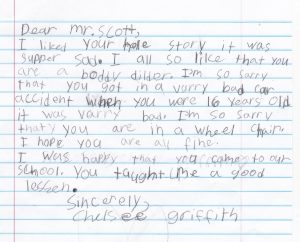 Dear Mr. Scott,
I liked your hole story it was
supper sad. I all so like that you
are a boddy dilder. I'm so sorry
that you got in a varry bad car
accident when you were 16 years old
it was varry bad. I'm so sorry
that you are in a wheel chair.
I hope you are all fine.
I was happy that you came to our
school. You taught me a good
lessen.
Sincerely,
Chelsee griffith